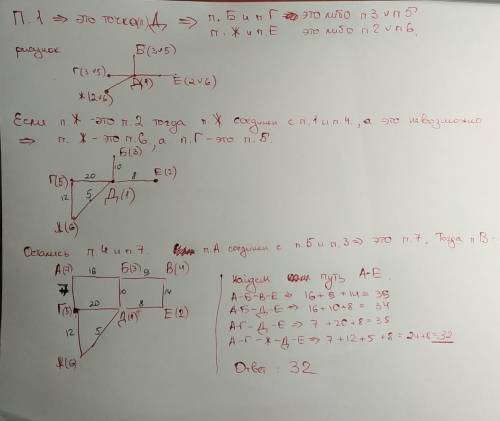 П. 1 => это точка(п) Д => п. Б и п. Г это либо п 3 v п 5
п. Ж и п. Е это либо п 2 v п 6.
рисунок
Б(3v5)
Г(3v5)
Д(1)
Е(2v6)
Ж(2v6)
Если п. Ж - это п. 2 тогда п Ж соединен с п. 1 и п. 4, а это невозможно
=> п. Ж - это п. 6, а п. Г - это п. 5.
Б(3)
10
Г(5) 20 8 Е(2)
12 5 Д(1)
Ж(6)
Остались п. 4 и п 7. п. А соединен с п. 5 и п. 3 => это п. 7. Тогда п В -
А(7) 16 Б(3) 9 В(4)
7 10 14
Г(5) 20 Д(1) 8 Е(2)
12 5
Ж(6)
найдем путь А-Е.
А-Б-В-Е => 16+9+14=39
А-Б-Д-Е => 16+10+8=34
А-Г-Д-Е => 7+20+8=35
А-Г-Ж-Д-Е => 7+12+5+8=24+8=32
Ответ: 32